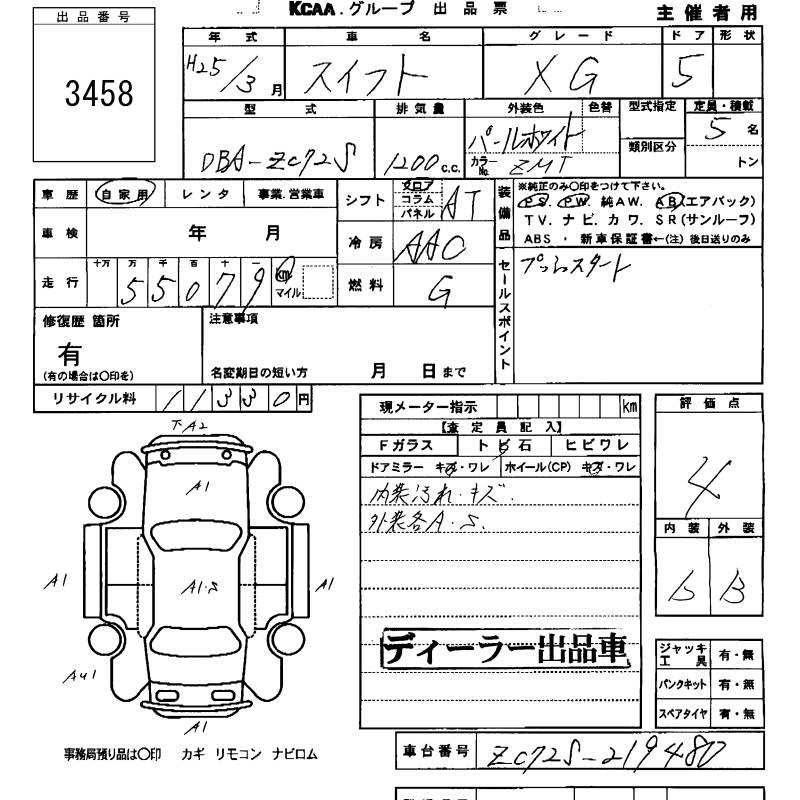 KCAA.グループ 出品票
主催者用
出品番号
3458
年式 車名 グレード ドア 形状
H25/3月 スイフト XG 5
型式 排気量 外装色 色替 型式指定 定員・積載
DBA-ZC72S 1200c.c. パールホワイト カラーNo. ZMT 類別区分 5名
トン
車歴 自家用 レンタ 事業.営業車
シフト フロア コラム パネル AT
装備品
※純正のみ○印をつけて下さい。
P S. P W. 純AW. AB(エアバック)
TV. ナビ. カワ. SR(サンルーフ)
ABS ・ 新車保証書←(注) 後日送りのみ
車検 年 月
冷房 AAC
走行 十万 万 千 百 十 一
55079 km マイル
燃料 G
セールスポイント
プッシュスタート
修復歴 箇所
有
(有の場合は○印を)
注意事項
名変期日の短い方 月 日まで
リサイクル料 11330円
現メーター指示 km
【査定員記入】
Fガラス トビ石 ヒビワレ
ドアミラー キズ・ワレ ホイール(CP) キズ・ワレ
内装汚れ・キズ.
外装各A・S.
ディーラー出品車
評価点
4
内装 外装
b B
ジャッキ工具 有・無
パンクキット 有・無
スペアタイヤ 有・無
下A2
A1
A1
A1・S
A1
AU1
A1
事務局預り品は○印 カギ リモコン ナビロム
車台番号 ZC72S-219480